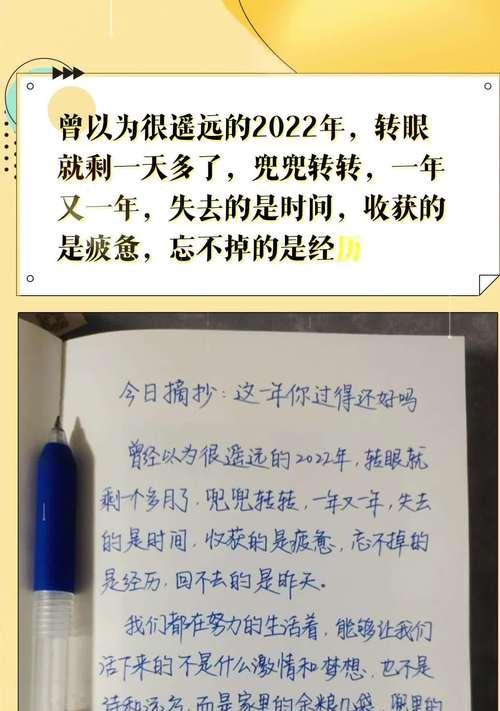 曾以为很遥远的2022年，转眼
就剩一天多了，兜兜转转，一年
又一年，失去的是时间，收获的
是疲惫，忘不掉的是经历
今日摘抄：这一年你过得还好吗
曾经以为很遥远的2022年，转眼就
剩一个多月了，兜兜转转，一年又一年，失去
的是时间，收获的是疲惫，忘不掉的
是经历，回不去的是昨天。
我们都在努力的生活着，能够让我们
活下来的不是什么激情和梦想，也不是
诗和远方，而是家里的余粮几袋，兜里的